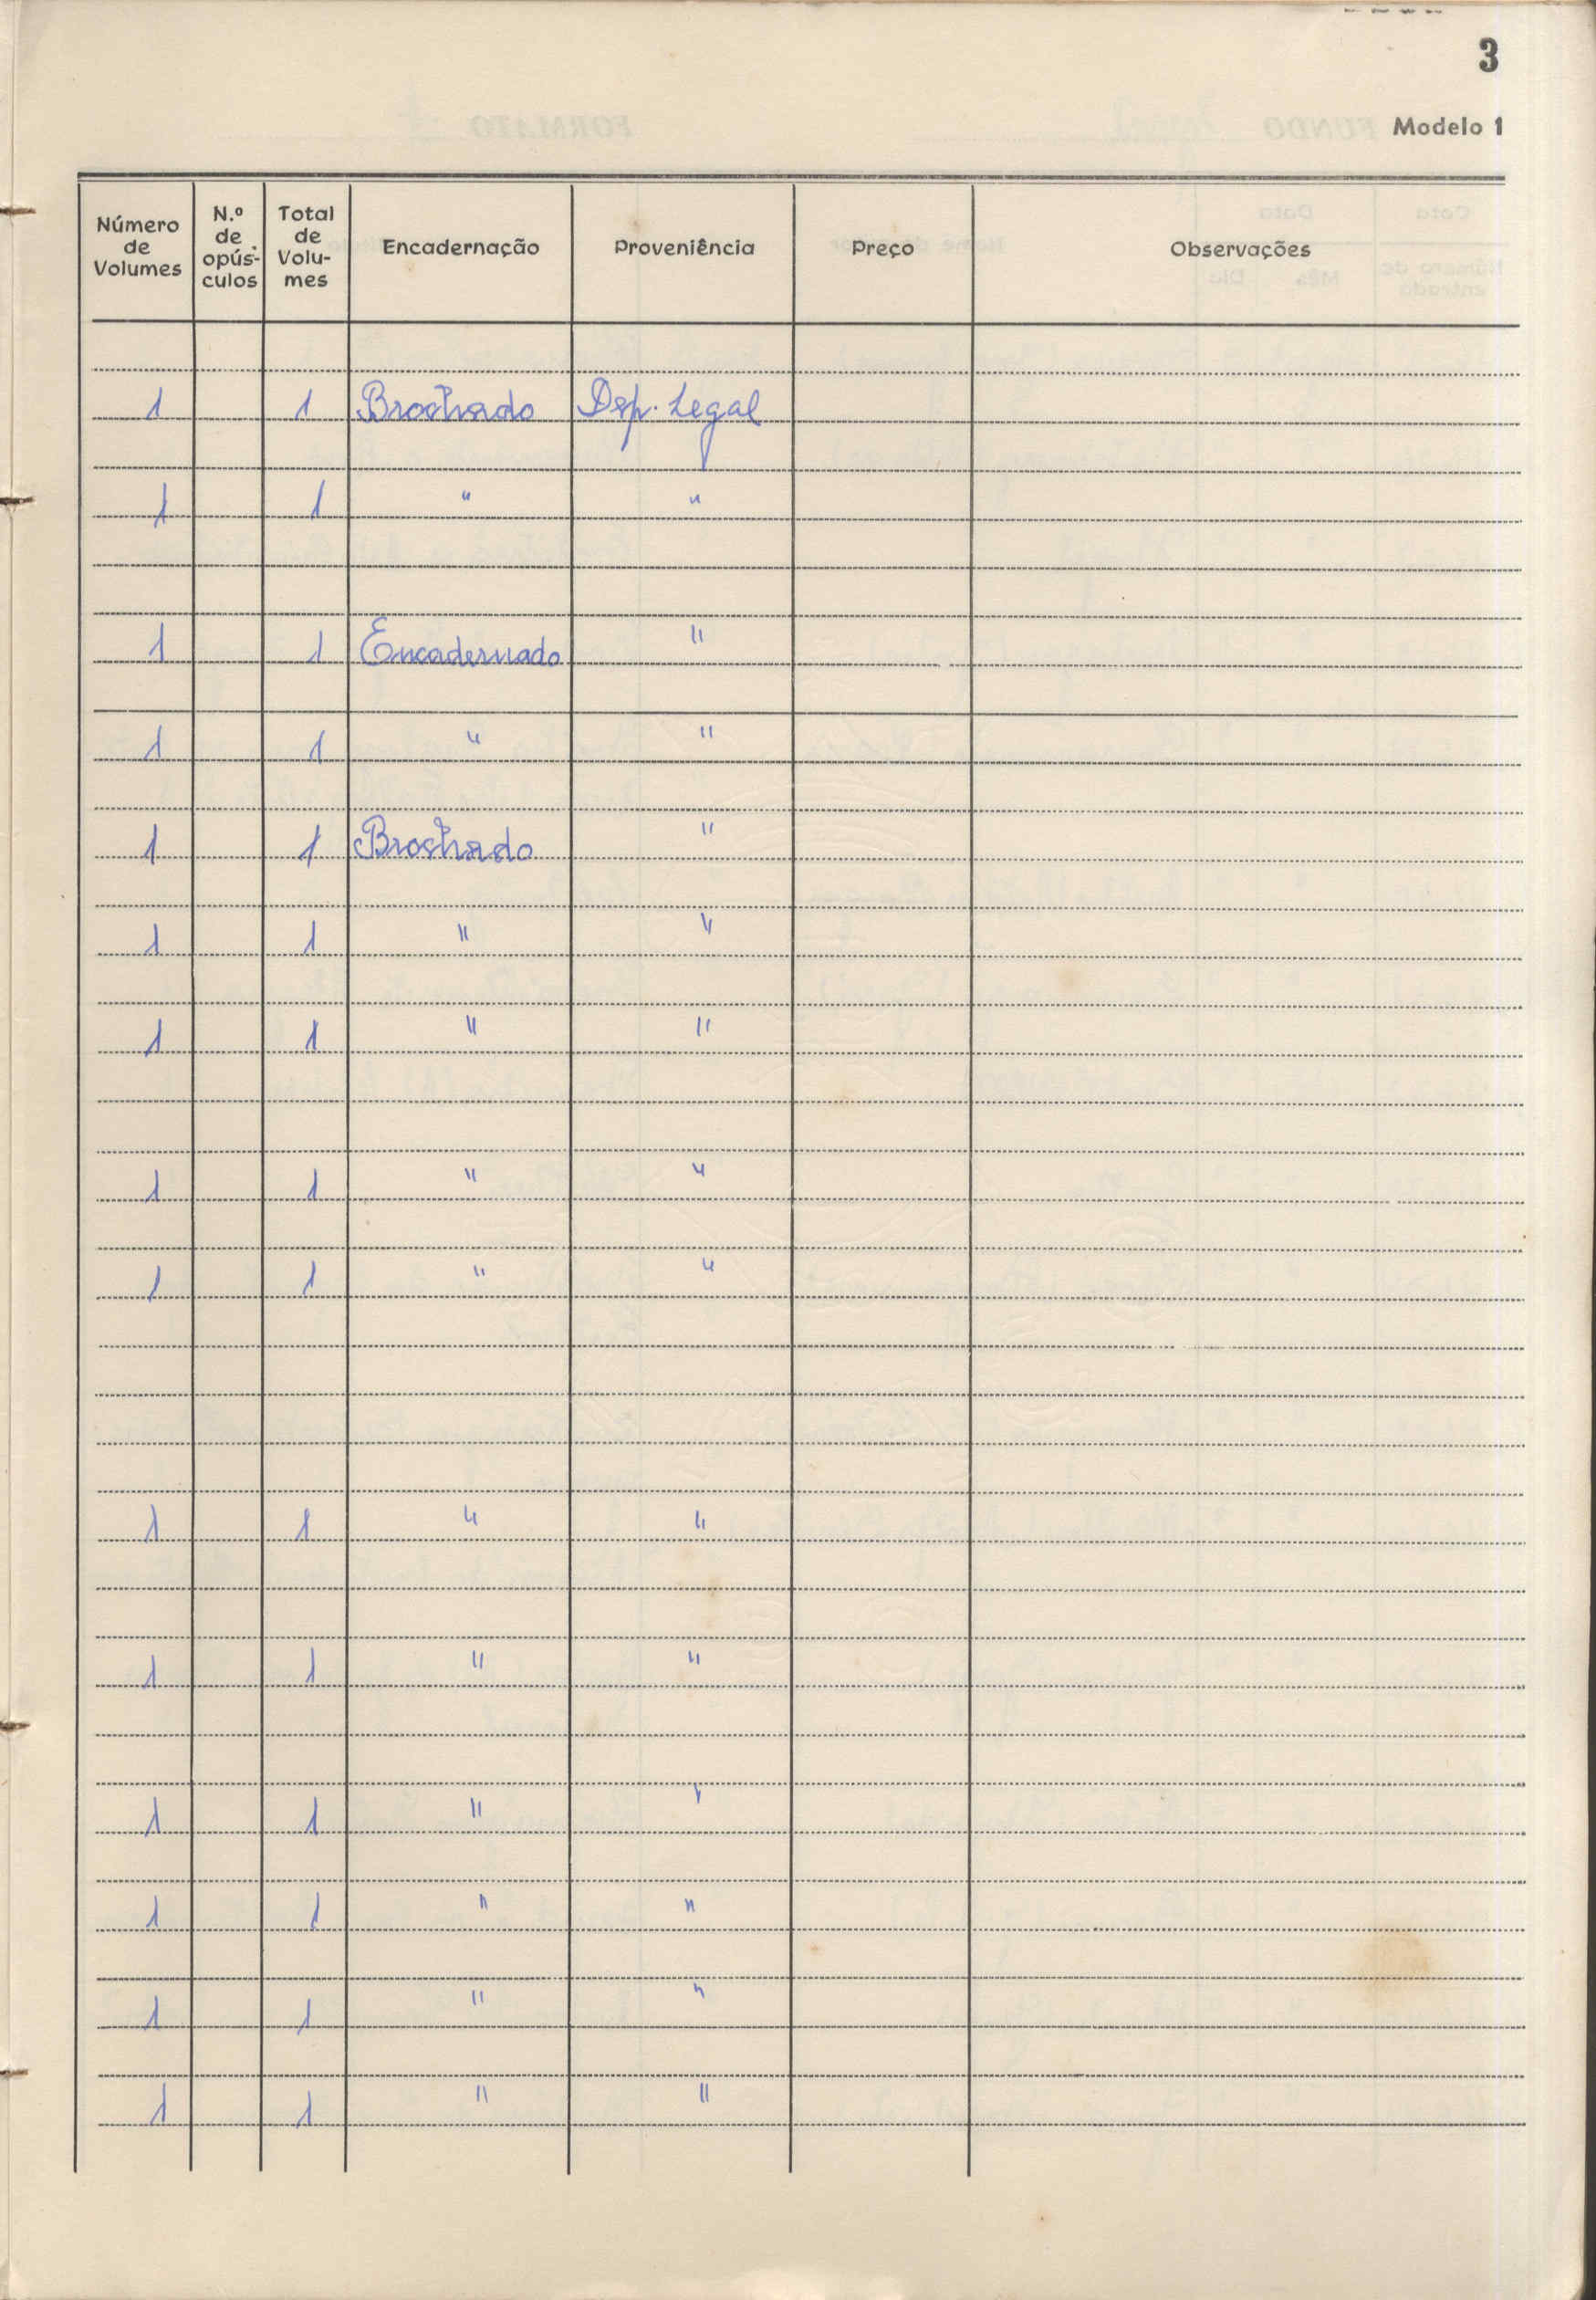 3
Modelo 1
Número de Volumes
N.º de opús-culos
Total de Volu-mes
Encadernação
Proveniência
Preço
Observações
1 1 Brochado Dep. Legal
1 1 " "
1 1 Encadernado "
1 1 " "
1 1 Brochado "
1 1 " "
1 1 " "
1 1 " "
1 1 " "
1 1 " "
1 1 " "
1 1 " "
1 1 " "
1 1 " "
1 1 " "